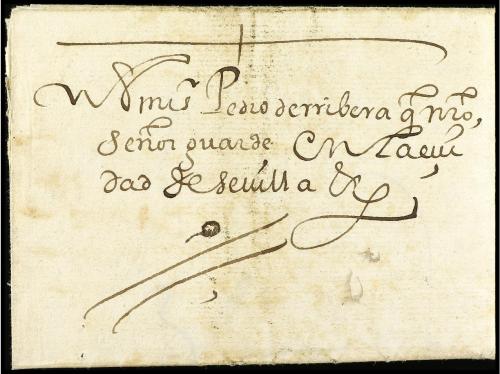 Pedro derribera q nro,
señor guarde en la çiu
dad de sevilla &